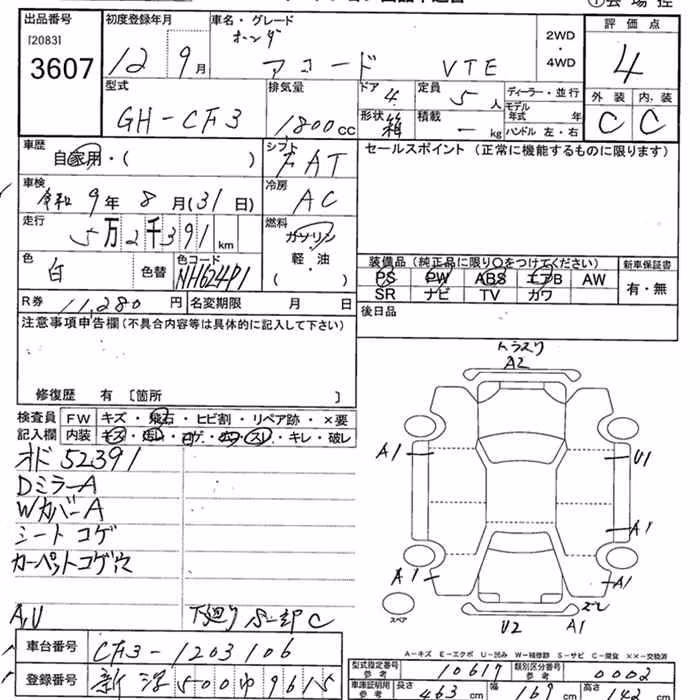 出品番号
[2083]
3607
初度登録年月
12 9月
車名・グレード
ホンダ
アコード VTE
2WD
・
4WD
評価点
4
型式
GH-CF3
排気量
1800cc
ドア
4
形状
箱
定員
5人
積載
ー kg
ディーラー・並行
モデル年式 年
ハンドル 左・右
外装 内装
C C
車歴
自家用・( )
シフト
FAT
セールスポイント (正常に機能するものに限ります)
車検
令和9年8月(31日)
冷房
AC
走行
5万2千391km
燃料
ガソリン
軽・油
( )
色
白
色替
色コード
NH624P1
装備品(純正品に限り〇をつけてください)
PS PW ABS エアB AW
SR ナビ TV カワ
新車保証書
有・無
R券 11,280円
名変期限 月 日
後日品
注意事項申告欄(不具合内容等は具体的に記入して下さい)
修復歴 有 [箇所 ]
検査員
記入欄
FW キズ・飛石・ヒビ割・リペア跡・×要
内装 キズ・汚レ・コゲ・穴・スレ・キレ・破レ
オド 52391
DミラーA
WカバーA
シートコゲ
カーペットコゲ穴
A,U
下廻り
C
A2
A1
U1
A1
A1
A1
スペア
U2
A1
ズレ
A-キズ E-エクボ U-凹み W-補修跡 S-サビ C-腐食 ××-交換済
車台番号
CF3-1203106
登録番号
500 9615
型式指定番号
参考
10617
類別区分番号
参考
0002
車庫証明用
参考
長さ
463cm
幅
169cm
高さ
142cm